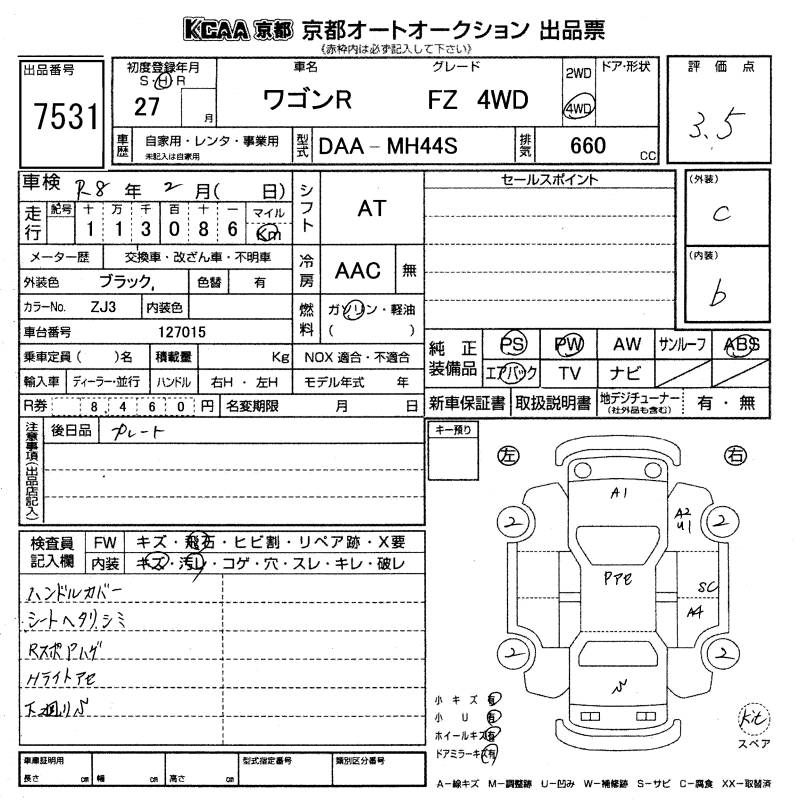 KCAA 京都 京都オートオークション 出品票
《赤枠内は必ず記入して下さい》
出品番号
7531
初度登録年月
S・H・R
27
月
車名
ワゴンR
グレード
FZ 4WD
2WD
4WD
ドア・形状
評価点
3.5
車歴
自家用・レンタ・事業用
未記入は自家用
型式
DAA-MH44S
排気
660
cc
車検
R8年2月(日)
走行
記号 十 万 千 百 十 一 マイル
1 1 3 0 8 6 Km
メーター歴 交換車・改ざん車・不明車
外装色 ブラック, 色替 有
カラーNo. ZJ3 内装色
車台番号 127015
乗車定員( )名 積載量 Kg
輸入車 ディーラー・並行 ハンドル 右H・左H
R券 8,460円 名変期限 月 日
シフト
AT
冷房
AAC
無
燃料
ガソリン・軽油
( )
NOX 適合・不適合
モデル年式 年
セールスポイント
(外装)
c
(内装)
b
純正装備品
PS PW AW サンルーフ ABS
エアバック TV ナビ
新車保証書 取扱説明書 地デジチューナー 有・無
(社外品も含む)
注意事項(出品店記入)
後日品 プレート
キー預り
左
右
検査員記入欄
FW キズ・飛石・ヒビ割・リペア跡・X要
内装 キズ・汚レ・コゲ・穴・スレ・キレ・破レ
ハンドルカバー
シートヘタリ、シミ
Rスポアハゲ
Hライトアセ
下廻りS
A1
A2
U1
2
2
Pアセ
SC
A4
2
2
小キズ有
小U有
ホイールキズ有
ドアミラーキズ有
kit
スペア
車庫証明用
長さ cm 幅 cm 高さ cm
型式指定番号
類別区分番号
A-線キズ M-調整跡 U-凹み W-補修跡 S-サビ C-腐食 XX-取替済